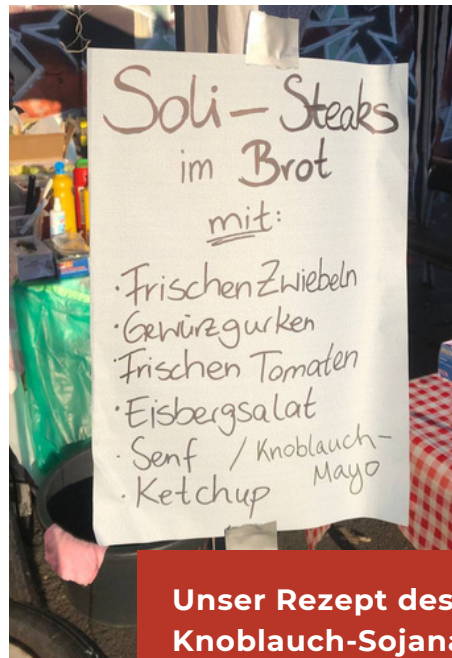 Soli-Steaks
im Brot
mit:
· Frischen Zwiebeln
· Gewürzgurken
· Frischen Tomaten
· Eisbergsalat
· Senf / Knoblauch-
Mayo
· Ketchup
Unser Rezept des